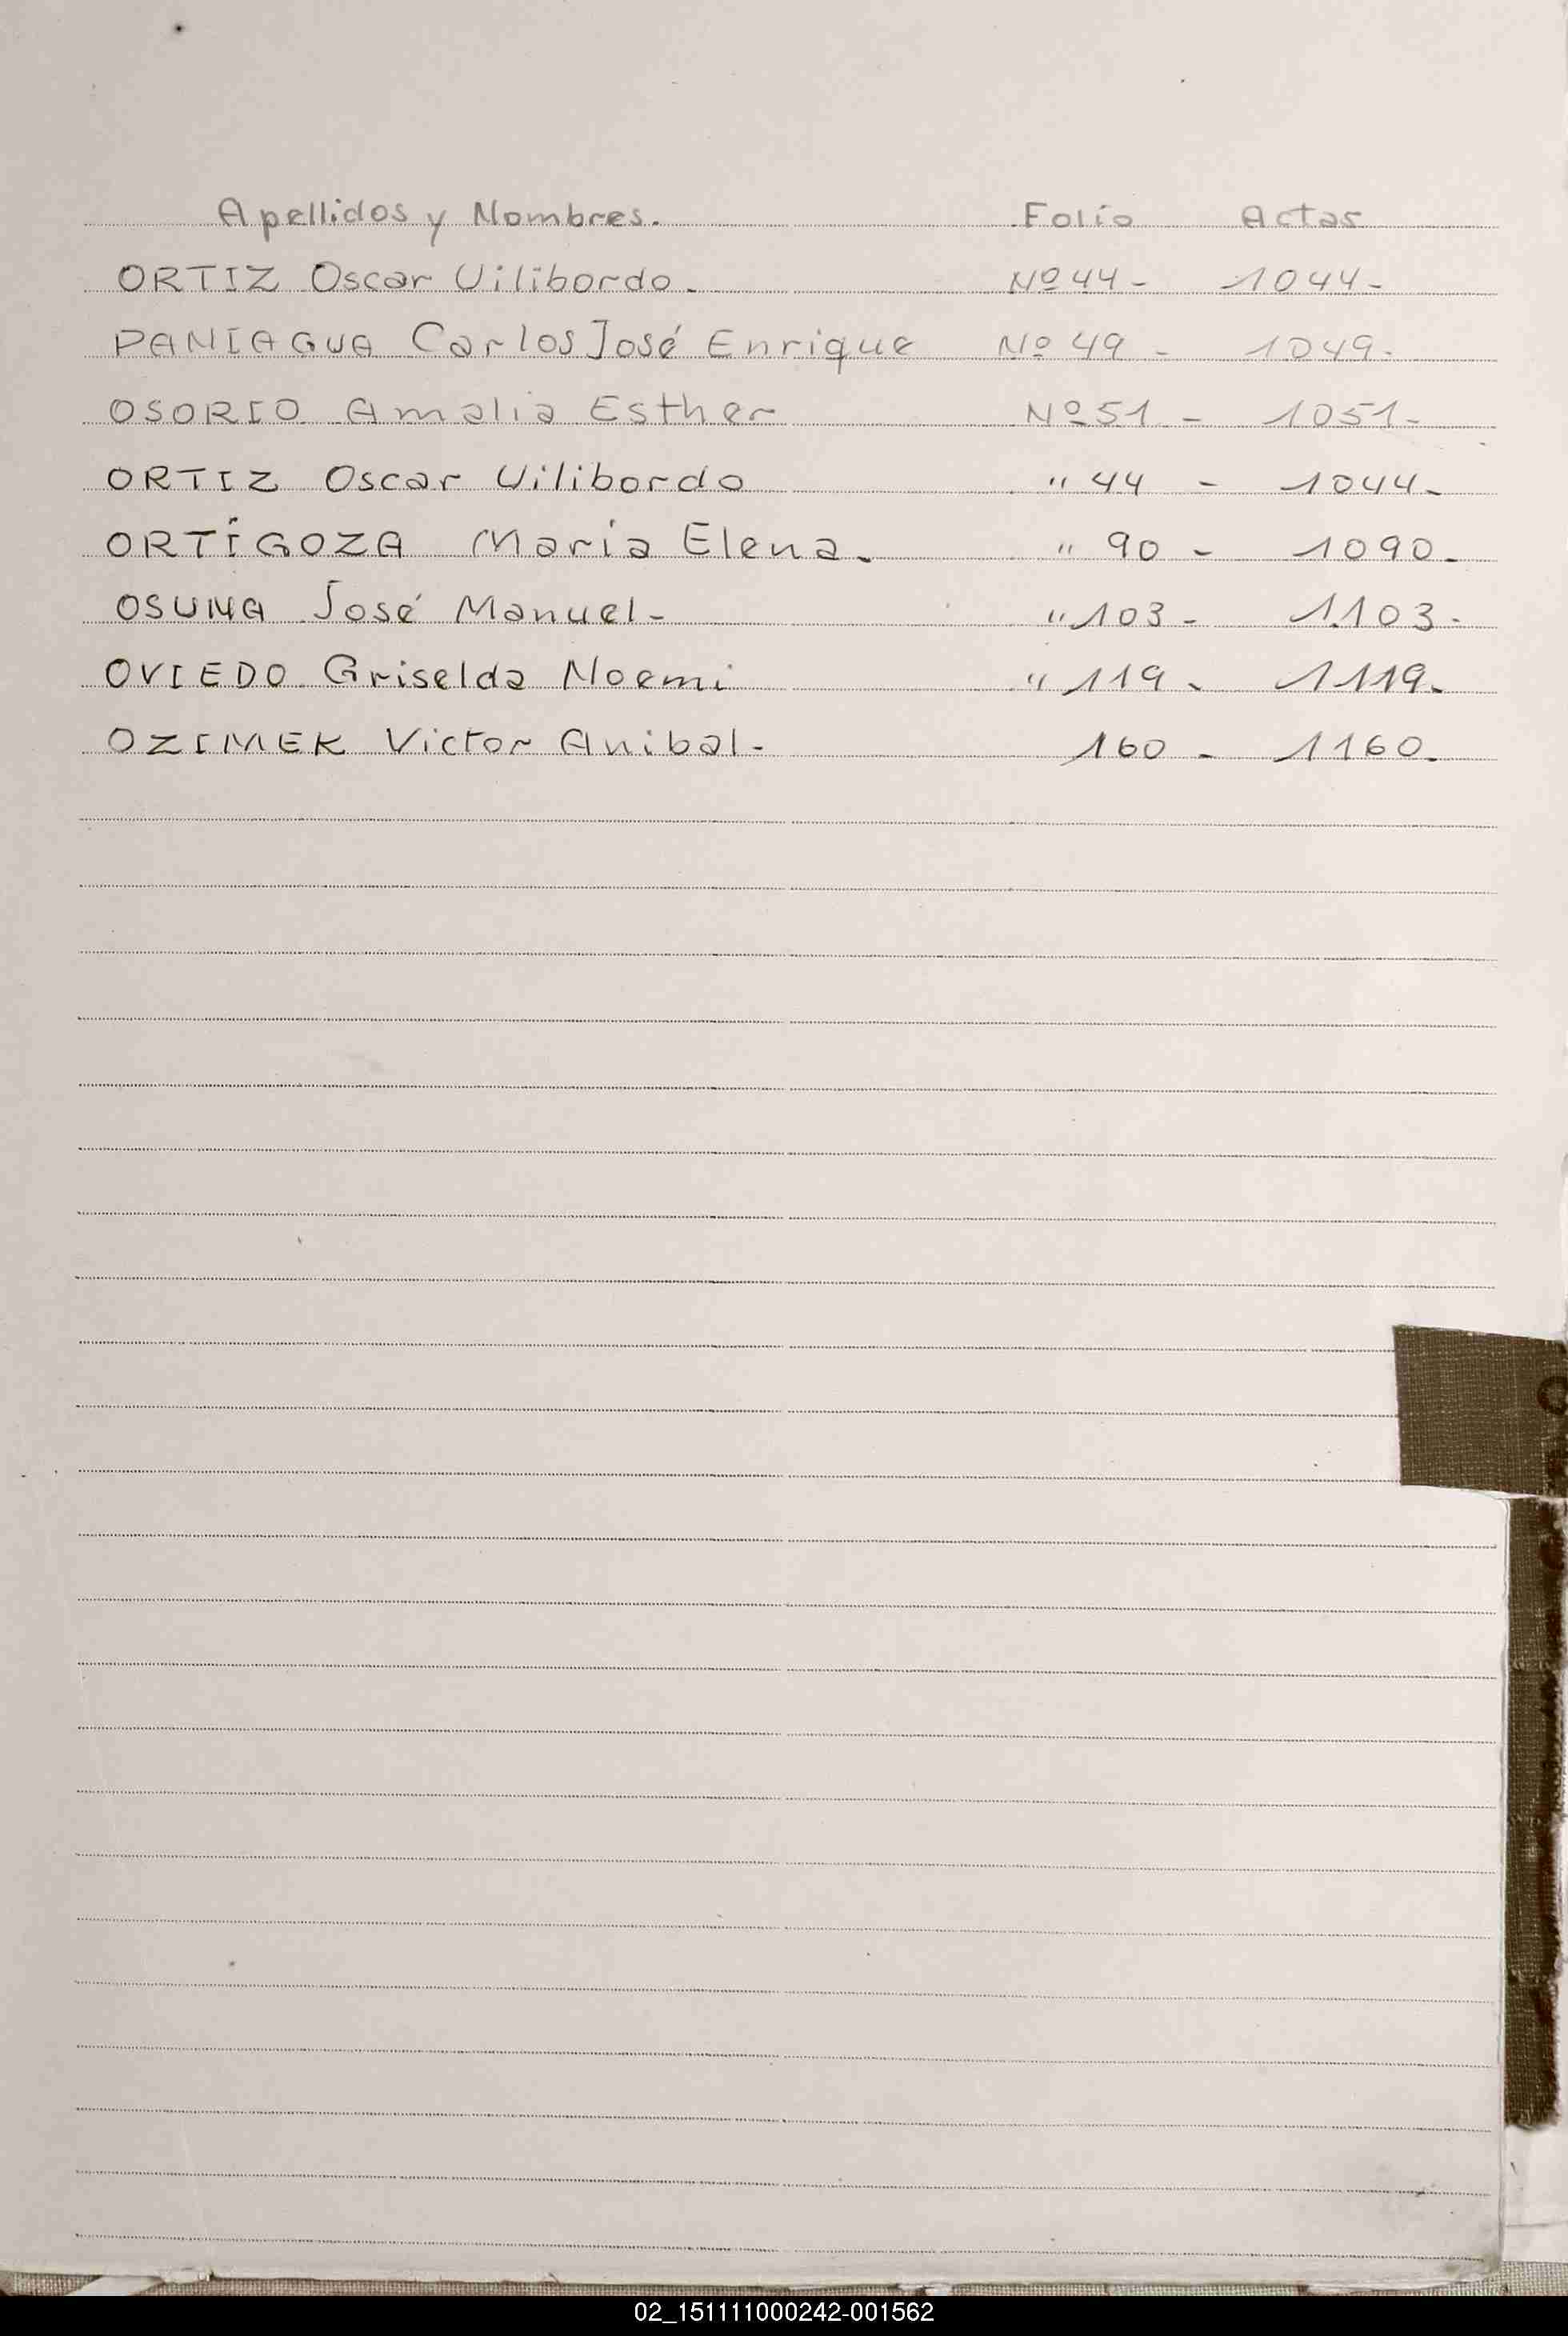 Apellidos y Nombres. Folio Actas
ORTIZ Oscar Uilibordo. Nº 44 - 1044-
PANIAGUA Carlos José Enrique Nº 49 - 1049-
OSORIO Amalia Esther Nº 51 - 1051-
ORTIZ Oscar Uilibordo " 44 - 1044-
ORTÍGOZA María Elena. " 90 - 1090.
OSUNA José Manuel- " 103 - 1103-
OVIEDO Griselda Noemi " 119 - 1119.
OZIMEK Victor Anibal- 160 - 1160.
O
02_151111000242-001562